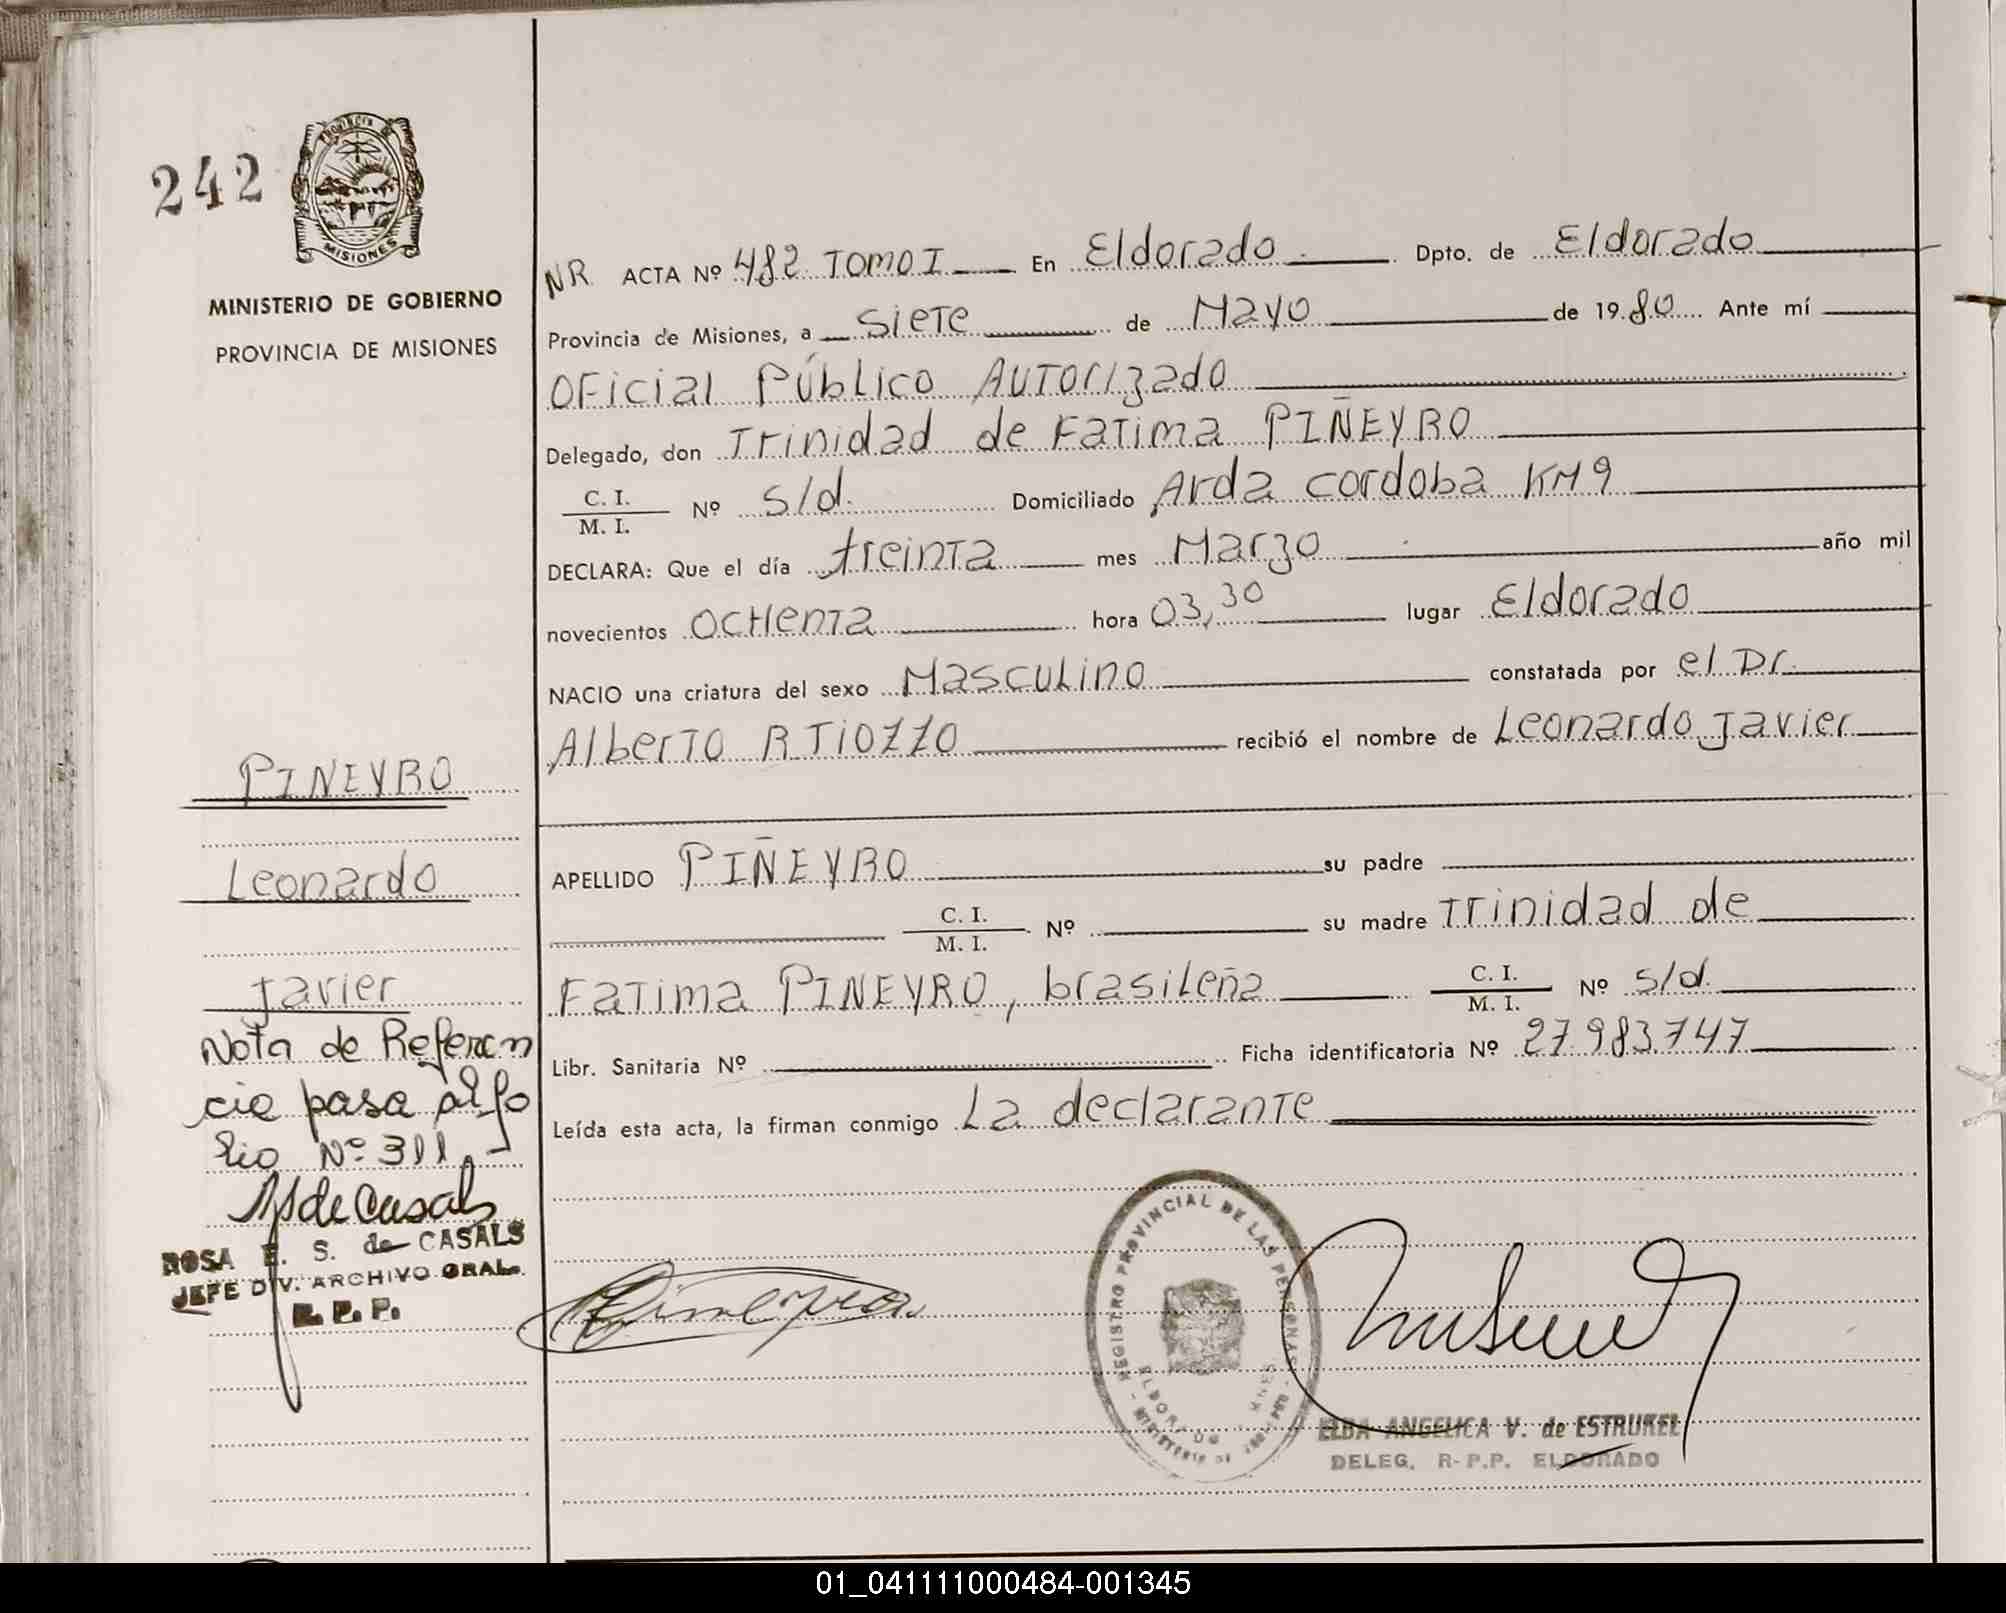 242
PROVINCIA DE
MISIONES
MINISTERIO DE GOBIERNO
PROVINCIA DE MISIONES
NR. ACTA Nº 482 TOMO I En Eldorado Dpto. de Eldorado
Provincia de Misiones, a siete de Mayo de 1980 Ante mí
Oficial Público Autorizado
Delegado, don Trinidad de Fatima PIÑEYRO
C. I.
M. I. Nº s/d. Domiciliado Avda Cordoba KM 9
DECLARA: Que el día treinta mes Marzo año mil
novecientos ochenta hora 03,30 lugar Eldorado
NACIO una criatura del sexo Masculino constatada por el Dr.
Alberto R TIOZZO recibió el nombre de Leonardo Javier
APELLIDO PIÑEYRO su padre
C. I.
M. I. Nº su madre Trinidad de
Fatima PINEYRO, brasileña C. I.
M. I. Nº s/d.
Libr. Sanitaria Nº Ficha identificatoria Nº 27.983.747
Leída esta acta, la firman conmigo La declarante
PINEYRO
Leonardo
Javier
Nota de Referen
cia pasa al fo
lio Nº 311
RS de Casals
ROSA E. S. de CASALS
JEFE DIV. ARCHIVO GRAL.
R. P. P.
Piñeyro
REGISTRO PROVINCIAL DE LAS PERSONAS
MINISTERIO DE
ELDORADO
ELBA ANGELICA V. de ESTRUKEL
DELEG. R-P.P. ELDORADO
01_041111000484-001345